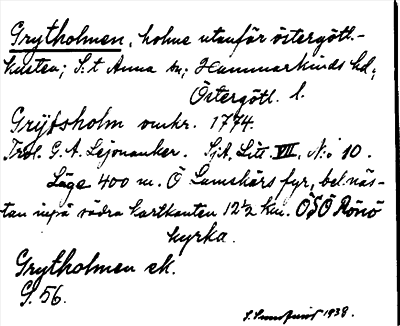 Grytholmen, holme utanför östergött.-
kusten; S:t Anna sn; Hammarkinds hd;
Östergötl. l.
Grijtsholm omkr. 1774.
Trol. G. A. Lejonanker. Sjk. Litt. VII, N:o 10.
Läge 400 m. Ö Lamskärs fyr, bel. näs-
tan inpå södra kartkanten 12½ km. ÖSÖ Rönö
kyrka.
Grytholmen ek.
G. 56.
1938.